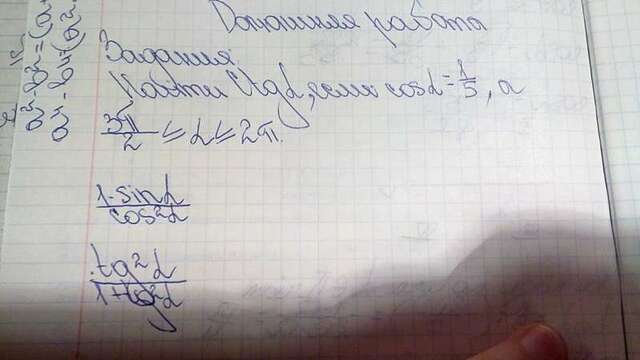 Домашняя работа
Задания.
Найти ctgα, если cosα = 1/5, а
3π/2 ≤ α ≤ 2π.
1-sinα/cos²α
tg²α/1+tg²α